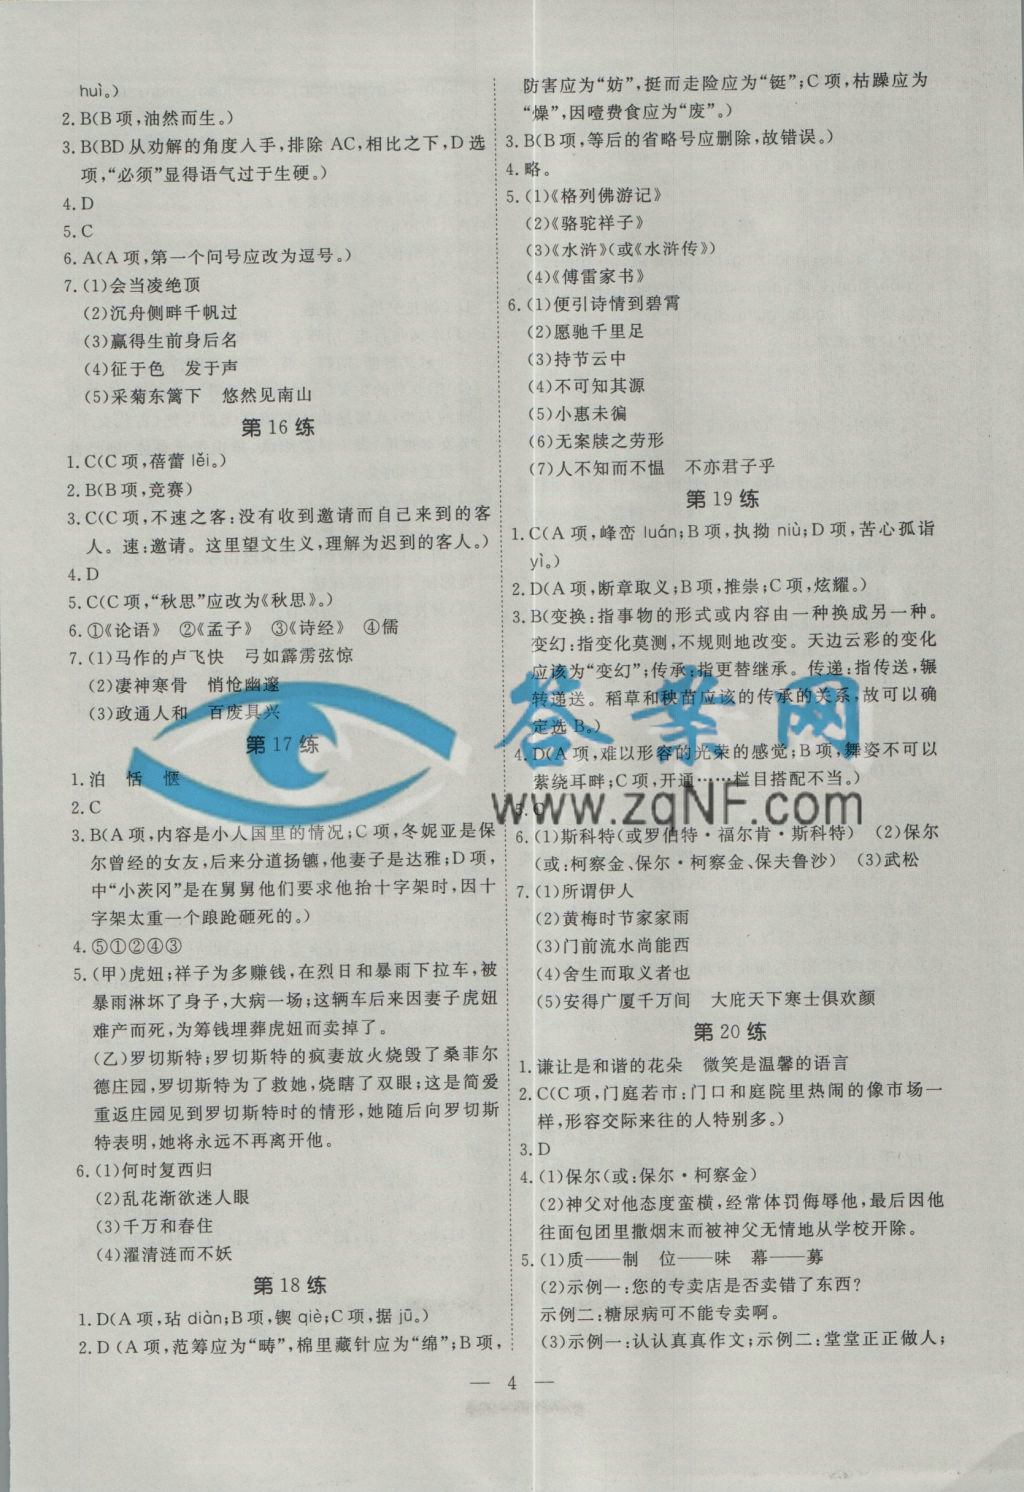 huì。)
2. B(B项,油然而生。)
3. B(BD从劝解的角度人手,排除 AC,相比之下,D选
项,“必须”显得语气过于生硬。)
4. D
5. C
6. A(A项,第一个问号应改为逗号。)
7. (1)会当凌绝顶
(2)沉舟侧畔千帆过
(3)赢得生前身后名
(4)征于色 发于声
(5)采菊东篱下 悠然见南山
第 16 练
1. C(C项,蓓蕾 lěi。)
2. B(B项,竞赛)
3. C(C项,不速之客:没有收到邀请而自己来到的客
人。速:邀请。这里望文生义,理解为迟到的客人。)
4. D
5. C(C项,“秋思”应改为《秋思》。)
6. ①《论语》 ②《孟子》 ③《诗经》 ④儒
7. (1)马作的卢飞快 弓如霹雳弦惊
(2)凄神寒骨 悄怆幽邃
(3)政通人和 百废具兴
第 17 练
1. 泊 恬 惬
2. C
3. B(A项,内容是小人国里的情况;C项,冬妮亚是保
尔曾经的女友,后来分道扬镳,他妻子是达雅;D项,
中“小茨冈”是在舅舅他们要求他抬十字架时,因十
字架太重一个踉跄砸死的。)
4. ⑤①②④③
5. (甲)虎妞;祥子为多赚钱,在烈日和暴雨下拉车,被
暴雨淋坏了身子,大病一场;这辆车后来因妻子虎妞
难产而死,为筹钱埋葬虎妞而卖掉了。
(乙)罗切斯特;罗切斯特的疯妻放火烧毁了桑菲尔
德庄园,罗切斯特为了救她,烧瞎了双眼;这是简爱
重返庄园见到罗切斯特时的情形,她随后向罗切斯
特表明,她将永远不再离开他。
6. (1)何时复西归
(2)乱花渐欲迷人眼
(3)千万和春住
(4)濯清涟而不妖
第 18 练
1. D(A项,玷 diàn;B项,锲 qiè;C项,据 jū。)
2. D(A项,范筹应为“畴”,棉里藏针应为“绵”;B项,
防害应为“妨”,挺而走险应为“铤”;C项,枯躁应为
“燥”,因噎费食应为“废”。)
3. B(B项,等后的省略号应删除,故错误。)
4. 略。
5. (1)《格列佛游记》
(2)《骆驼祥子》
(3)《水浒》(或《水浒传》)
(4)《傅雷家书》
6. (1)便引诗情到碧霄
(2)愿驰千里足
(3)持节云中
(4)不可知其源
(5)小惠未徧
(6)无案牍之劳形
(7)人不知而不愠 不亦君子乎
第 19 练
1. C(A项,峰峦 luán;B项,执拗 niù;D项,苦心孤诣
yì。)
2. D(A项,断章取义;B项,推崇;C项,炫耀。)
3. B(变换:指事物的形式或内容由一种换成另一种。
变幻:指变化莫测,不规则地改变。天边云彩的变化
应该为“变幻”;传承:指更替继承。传递:指传送,辗
转递送。稻草和秧苗应该的传承的关系,故可以确
定选 B。)
4. D(A项,难以形容的光荣的感觉;B项,舞姿不可以
萦绕耳畔;C项,开通……栏目搭配不当。)
5. C
6. (1)斯科特(或罗伯特·福尔肯·斯科特) (2)保尔
(或:柯察金、保尔·柯察金、保夫鲁沙) (3)武松
7. (1)所谓伊人
(2)黄梅时节家家雨
(3)门前流水尚能西
(4)舍生而取义者也
(5)安得广厦千万间 大庇天下寒士俱欢颜
第 20 练
1. 谦让是和谐的花朵 微笑是温馨的语言
2. C(C项,门庭若市:门口和庭院里热闹的像市场一
样,形容交际来往的人特别多。)
3. D
4. (1)保尔(或:保尔·柯察金)
(2)神父对他态度蛮横,经常体罚侮辱他,最后因他
往面包团里撒烟末而被神父无情地从学校开除。
5. (1)质——制 位——味 幕——募
(2)示例一:您的专卖店是否卖错了东西?
示例二:糖尿病可不能专卖啊。
(3)示例一:认认真真作文;示例二:堂堂正正做人;
— 4 —
答案网
www.zqNF.com